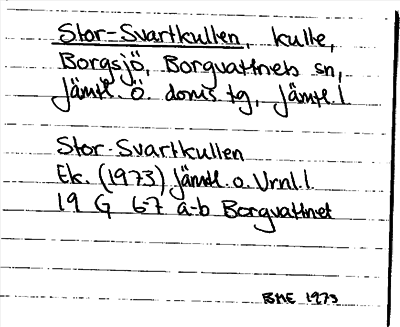 Stor-Svartkullen, kulle,
Borgsjö, Borgvattnets sn,
Jämtl. Ö. doms tg, Jämtl. l.
Stor-Svartkullen
Ek. (1973) Jämtl. o. Vrnl. l.
19 G 6-7 a-b Borgvattnet
BME 1973